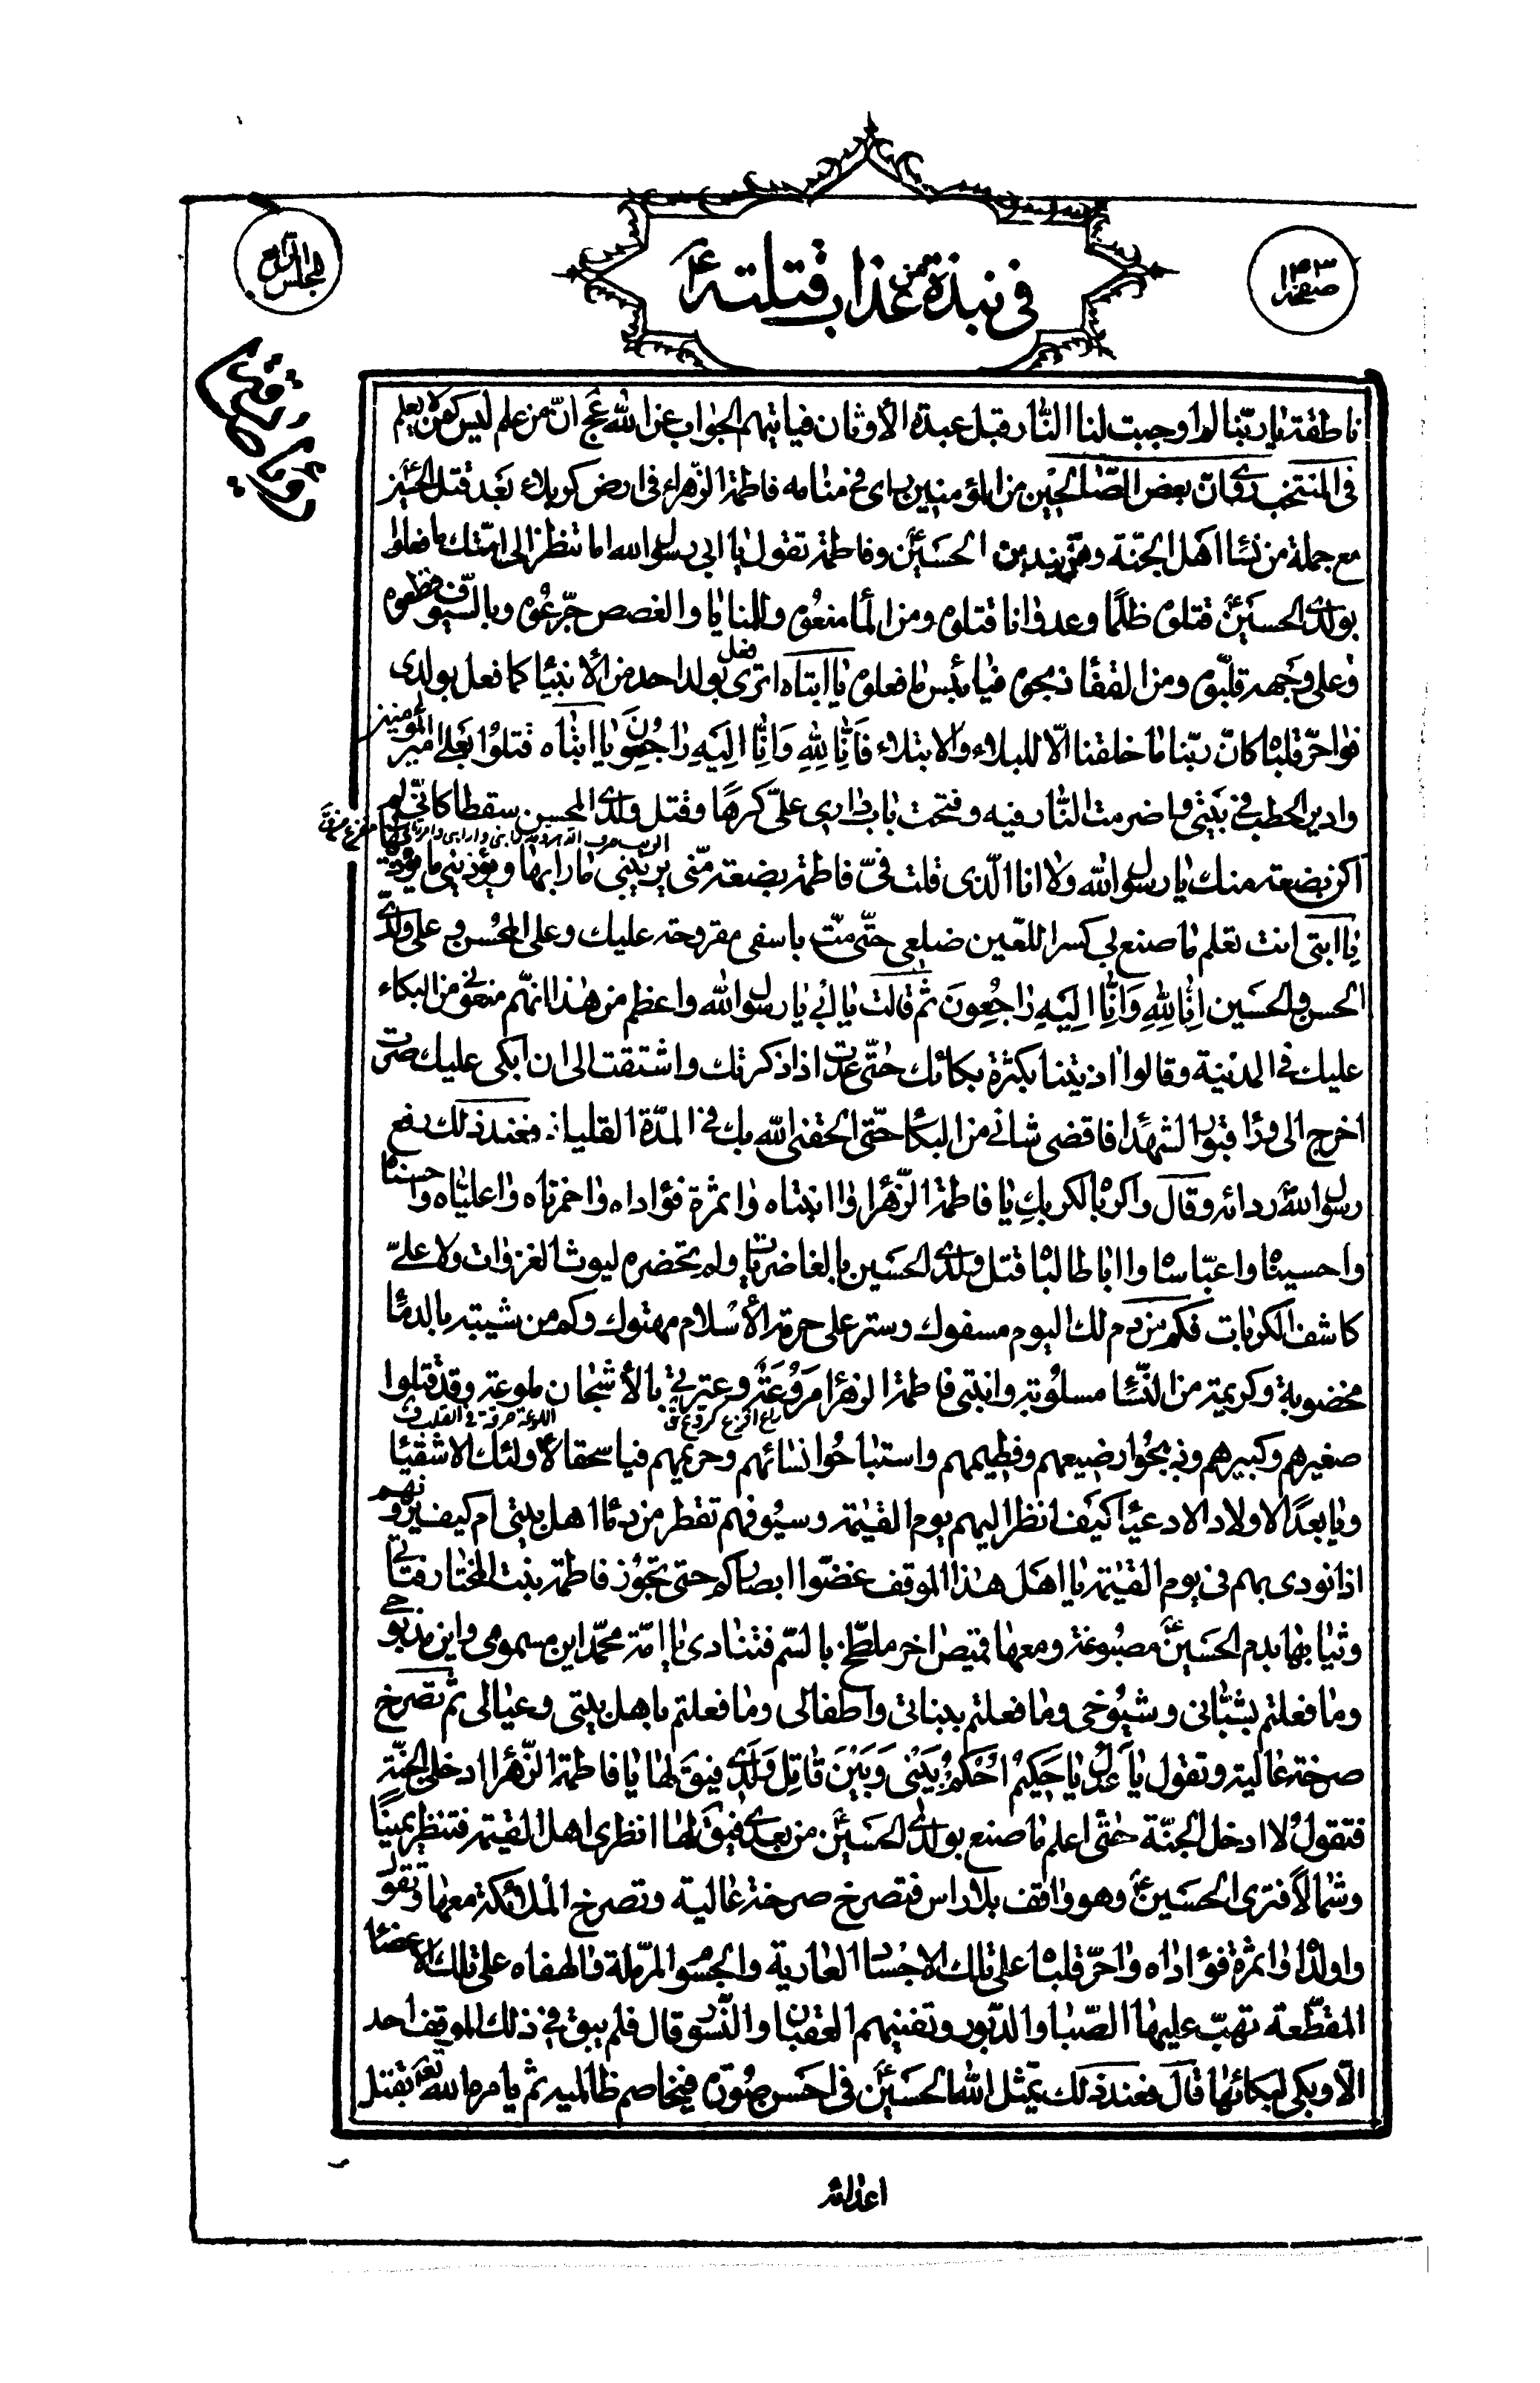 صفحه ١٤٣
في نبذة من عذاب قتلته ع
المجلس الرابع
رؤيا صادقة
ناطقة يا ربّنا لم اوجبت لنا النّار قبل عبدة الأوثان فياتيهم الجواب عن الله عج انّ من علم ليس كمن لا يعلم
في المنتخب روى انّ بعض الصّالحين من المؤمنين راى في منامه فاطمة الزهراء في ارض كربلاء بعد قتل الحسين
مع جملة من نسا اهل الجنّة وهنّ يندبن الحسينؑ وفاطمة تقول يا ابي يا رسول الله اما تنظر الى امّتك ما فعلوا
بولدى الحسينؑ قتلوه ظلمًا وعدوانا قتلوه ومن الما منعوه والمنايا والغصص جرّعوه وبالسيوف قطعوه
وعلى وجهه قلّبوه ومن القفا ذبحوه فيا بئس ما فعلوه يا ابتاه اترى فعل بولد احد من الأنبيا كما فعل بولدى
فواحرّ قلباه كانّ ربّنا ما خلقنا الّا للبلاء والابتلاء فَاِنّا لِلّهِ وَاِنّا اِلَيهِ راجِعُونَ يا ابتاه قتلوا بعلي امير المؤمنين
وادير الحطب في بيتي واضرمت النّار فيه وفتحت باب داري علىّ كرهًا وقتل ولدى المحسن سقطا كانّي لم
اكن بضعة منك يا رسول الله ولا انا الّذى قلت فىّ فاطمة بضعة منّى يريبني ما رابها ويؤذيني ما يؤذيها
يا ابتي انت تعلم ما صنع بي كسر اللعين ضلعي حتّى متّ باسفى مقروحة عليك وعلى المحسن وعلى ولدىّ
الحسن والحسين اِنّا لِلّهِ وَاِنّا اِلَيهِ راجِعُونَ ثمّ قالت يا ابي يا رسول الله واعظم من هذا انّهم منعوني من البكاء
عليك في المدينة وقالوا اذيتنا بكثرة بكائك حتّى عدت اذا ذكرتك واشتقت الى ان ابكى عليك صرت
اخرج الى ورا قبور الشهدا فاقضى شاني من البكا حتّى الحقني الله بك في المدّة القليلة فعند ذلك رفع
رسول الله ردائه وقال واكربا لكربك يا فاطمة الزّهرا وا ابنتاه وا ثمرة فؤاداه واحمزتاه واعليّاه واحسناه
واحسيناه واعبّاساه وا ابا طالباه قتل ولدى الحسين بالغاضريات ولم تحضره ليوث الغزوات ولا علىّ
كاشف الكربات فكم من دم لك اليوم مسفوك وستر على حرمة الأسلام مهتوك وكم من شيبة بالدما
مخضوبة وكريمة من النّسا مسلوبة وابنتي فاطمة الزهرا مَروُعَة وعترتي بالأشجان ملوعة وقد قتلوا
صغيرهم وكبيرهم وذبحوا رضيعهم وفطيمهم واستباحوا نسائهم وحريمهم فيا سحقا لأولئك الاشقيا
ويا بعدًا لاولاد الادعيا كيف انظر اليهم يوم القيمة وسيوفهم تقطر من دما اهل بيتي ام كيف يرونهم
اذا نودى بهم في يوم القيمة يا اهل هذا الموقف غضّوا ابصاركم حتى تجوز فاطمة بنت المختار فتاتي
وثيابها بدم الحسينؑ مصبوغة ومعها قميص اخر ملطّخ بالسّم فتنادى يا امّة محمّد اين مسمومي واين مذبوحي
وما فعلتم بشبّاني وشيوخي وما فعلتم ببناتي واطفالى وما فعلتم باهل بيتي وعيالى ثم تصرخ
صرخة عالية وتقول يا عدل يا حكيم احكم بيني وبين قاتل ولدى فيقَ لها يا فاطمة الزّهرا ادخلى الجنّة
فتقول لا ادخل الجنّة حتّى اعلم ما صنع بولدى الحسينؑ من بعدى فيقَ لها انظرى اهل القيمة فتنظر يمينًا
وشمالًا فترى الحسينؑ وهو واقف بلا راس فتصرخ صرخة عالية وتصرخ الملائكة معها وتقول
واولداه وا ثمرة فؤاداه واحرّ قلباه على تلك الاجساد العارية والجسوم المرّملة والهفاه على تلك الاعضا
المقطّعة تهبّ عليها الصّبا والدّبور وتفنيهم العقبان والنّسور قال فلم يبق في ذلك الموقف احد
الّا وبكى لبكائها قال فعند ذلك يمثّل الله الحسينؑ في احسن صورة فيخاصم ظالميه ثم يامر الله تعالى بقتل
اعداء الله